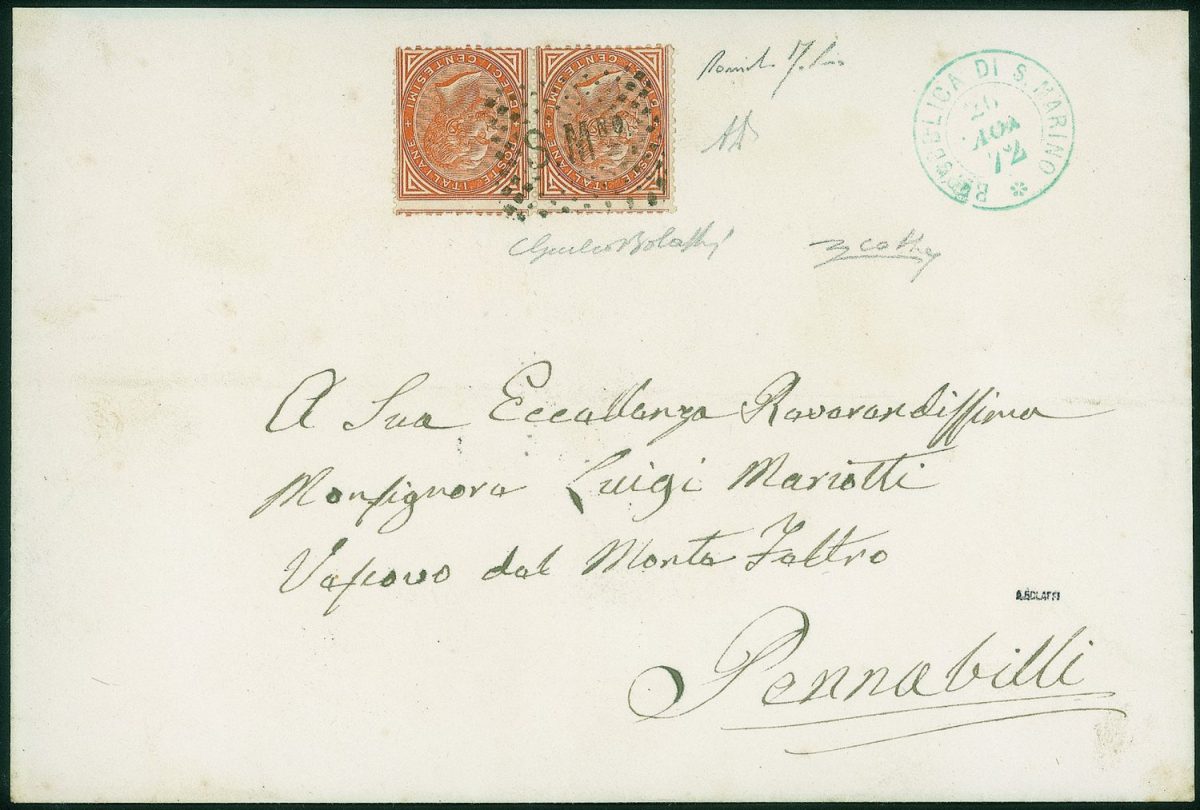 DIECI CENTESIMI
POSTE ITALIANE
DIECI CENTESIMI
POSTE ITALIANE
S Mno
REPUBBLICA DI S. MARINO
26
NOV
72
Giulio Bolaffi
A Sua Eccellenza Reverendissima
Monsignore Luigi Mariotti
Vescovo del Monte Feltro
Pennabilli
A.BOLAFFI